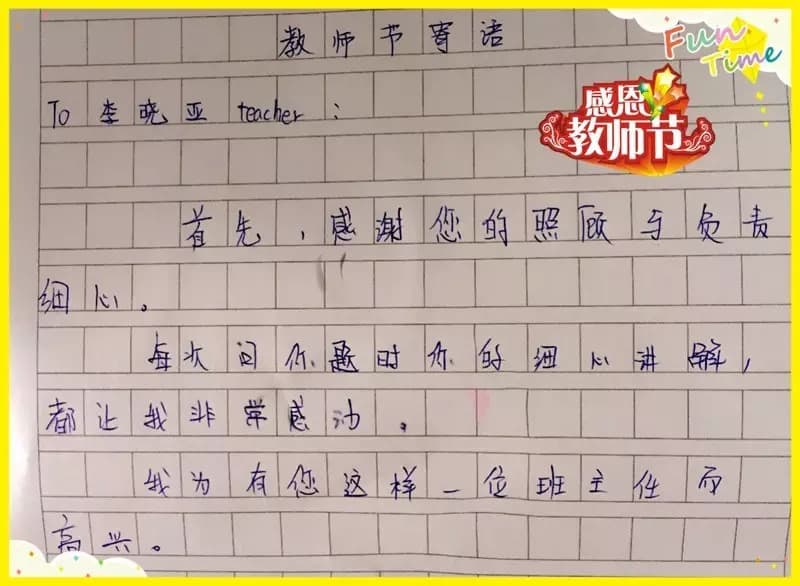 教师节寄语
Fun Time
感恩
教师节
To 李晓亚 teacher：
首先，感谢您的照顾与负责
细心。
每次问你题时你的细心讲解，
都让我非常感动。
我为有您这样一位班主任而
高兴。